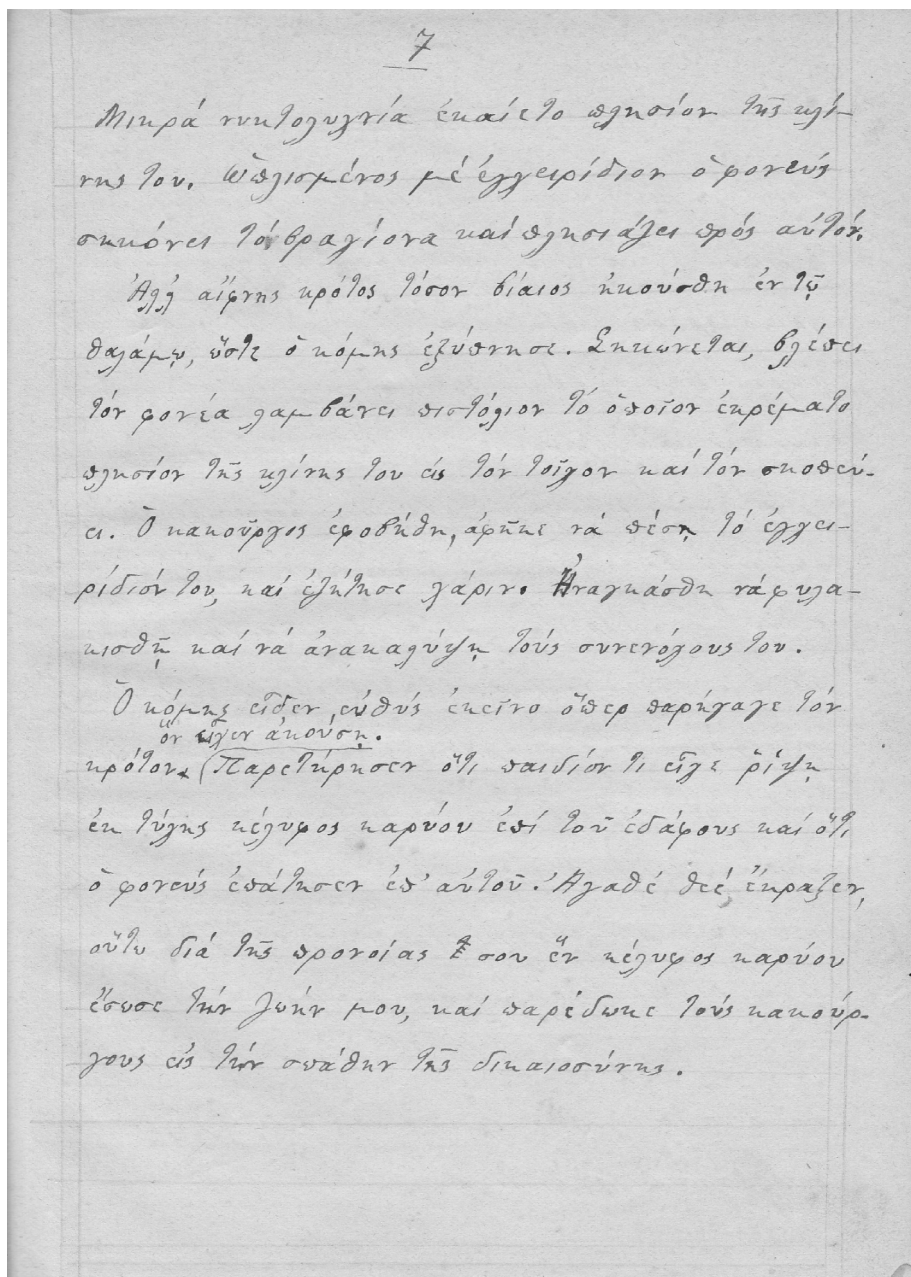 7
Μικρά νυκτολυχνία ἐκαίετο πλησίον τῆς κλί-
νης του. Ὡπλισμένος μέ ἐγχειρίδιον ὁ φονεύς
σηκόνει τόν βραχίονα καί πλησιάζει πρός αὐτόν.
Ἀλλ' αἴφνης κρότος τόσον βίαιος ἠκούσθη ἐν τῷ
θαλάμῳ, ὥστε ὁ κόμης ἐξύπνησε. Σηκώνεται, βλέπει
τόν φονέα λαμβάνει πιστόλιον τό ὁποῖον ἐκρέματο
πλησίον τῆς κλίνης του εἰς τόν τοῖχον καί τόν σκοπεύ-
ει. Ὁ κακοῦργος ἐφοβήθη, ἀφῆκε νά πέσῃ τό ἐγχει-
ρίδιόν του, καί ἐζήτησε χάριν. Ἠναγκάσθη νά φυλα-
κισθῇ καί νά ἀνακαλύψῃ τούς συνενόχους του.
Ὁ κόμης εἶδεν εὐθύς ἐκεῖνο ὅπερ παρήγαγε τόν
ὅν εἶχεν ἀκούσῃ.
κρότον. (Παρετήρησεν ὅτι παιδίον τι εἶχε ῥίψῃ
ἐκ τύχης κέλυφος καρύου ἐπί τοῦ ἐδάφους καί ὅτι
ὁ φονεύς ἐπάτησεν ἐπ' αὐτοῦ. Ἀγαθέ θεέ ἔκραξεν,
οὕτω διά τῆς προνοίας σου ἕν κέλυφος καρύου
ἔσωσε τήν ζωήν μου, καί παρέδωκε τούς κακούρ-
γους εἰς τήν σπάθην τῆς δικαιοσύνης.